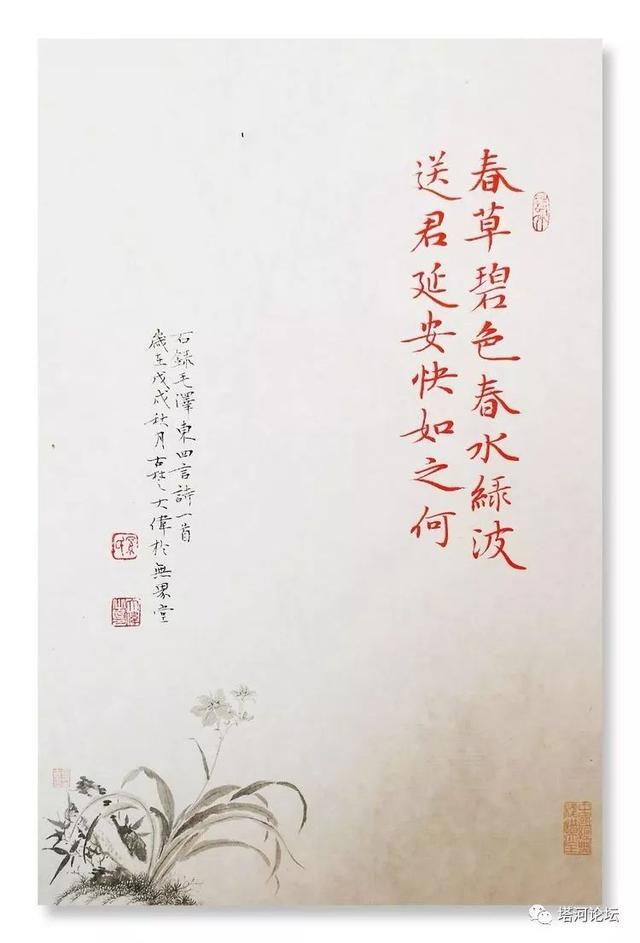 春草碧色春水緑波
送君延安快如之何
右録毛澤東四言詩一首
歲在戊戌秋月古楚大偉於無堂
塔河论坛